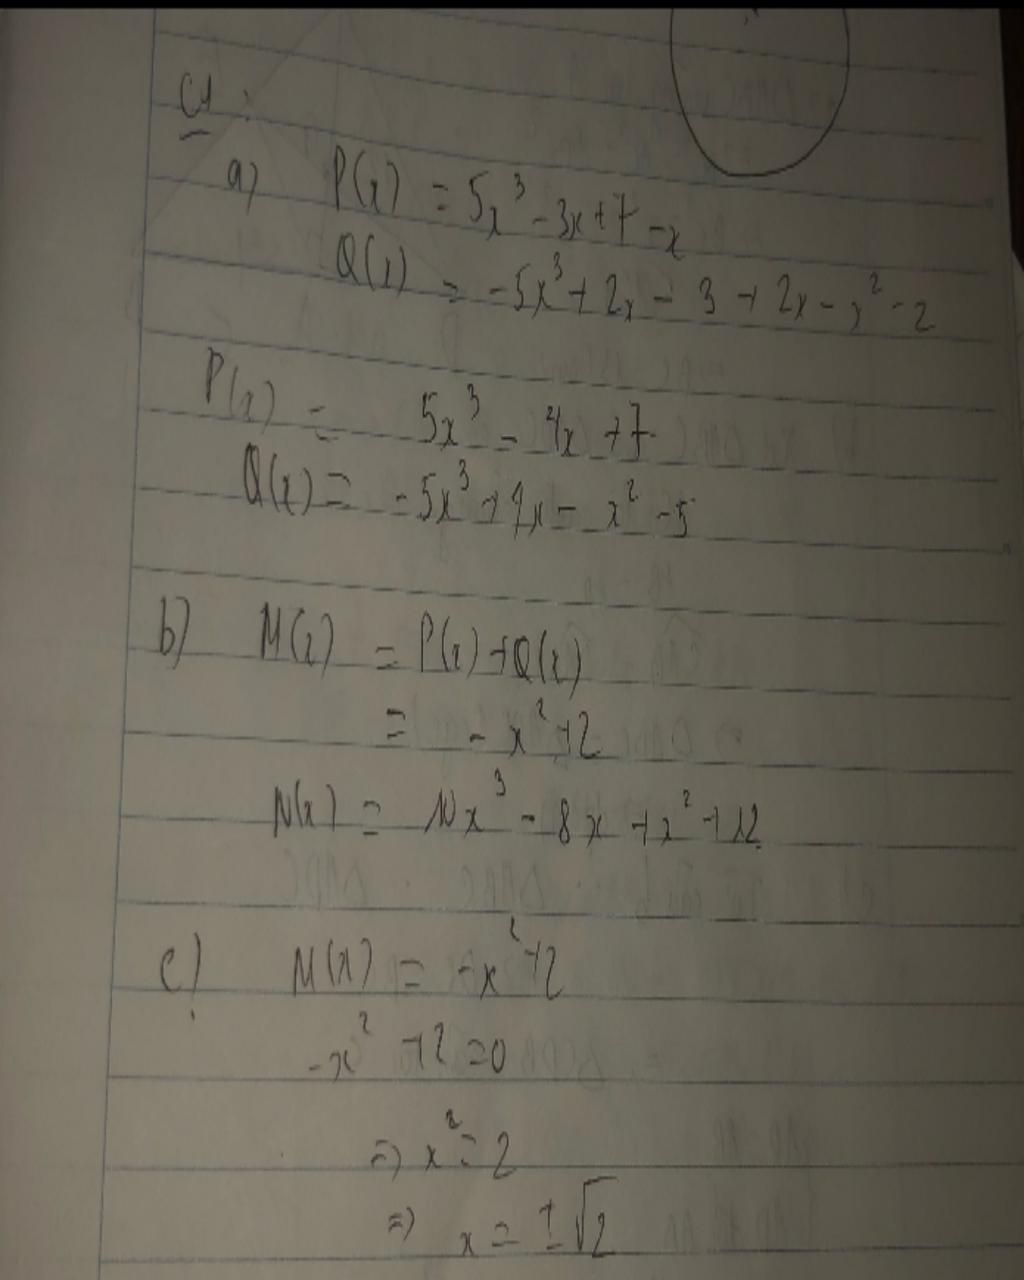 C4:
a) P(x) = 5x³ - 3x + 7 - x
Q(x) = -5x³ + 2x - 3 + 2x - x² - 2
P(x) = 5x³ - 4x + 7
Q(x) = -5x³ + 4x - x² - 5
b) M(x) = P(x) + Q(x)
= -x² + 2
N(x) = 10x³ - 8x + x² + 12
c) M(x) = -x² + 2
-x² + 2 = 0
=> x² = 2
=> x = ±√2